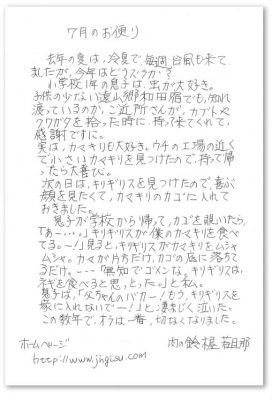 7月のお便り
去年の夏は、冷夏で、毎週台風も来て
ましたが、今年はどうスラカ?
小学校1年の息子は、虫が大好き。
子供の少ない遠山郷和田宿でも、知れ
渡っているのか、ご近所さんが、カブトや
クワガタを拾った時に、持って来てくれて、
感謝ですに。
実は、カマキリも大好き。ウチの工場の近く
で、小さいカマキリを見つけたので、持って帰
ったら大喜び。
次の日は、キリギリスを見つけたので、喜ぶ
顔を見たくて、カマキリのカゴに入れて
おきました。
息子が学校から帰って、カゴを覗いたら、
「あー…。」キリギリスが僕のカマキリを食べ
てる。〜!」見ると、キリギリスがカマキリをムシャ
ムシャ。カマが片方だけ、カゴの底に落ち
てるだけ。---「無知でゴメンな。キリギリスは、
ネギを食べると思っとった。」と私。
息子は、「父ちゃんのバカー!もう、キリギリスを
家に入れないでー!」と凄まじく泣いた。
この数年で、オラは一番、切なくなりました。
ホームページ 肉の鈴木屋 若旦那
http://www.jingisu.com/